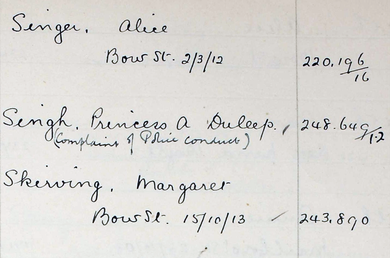 Singer, Alice
Bow St. 2/3/12 220.196/16
Singh, Princess A Duleep. 248.649/1-2
(Complaint of Police conduct)
Skerving, Margaret
Bow St. 15/10/13 243.890